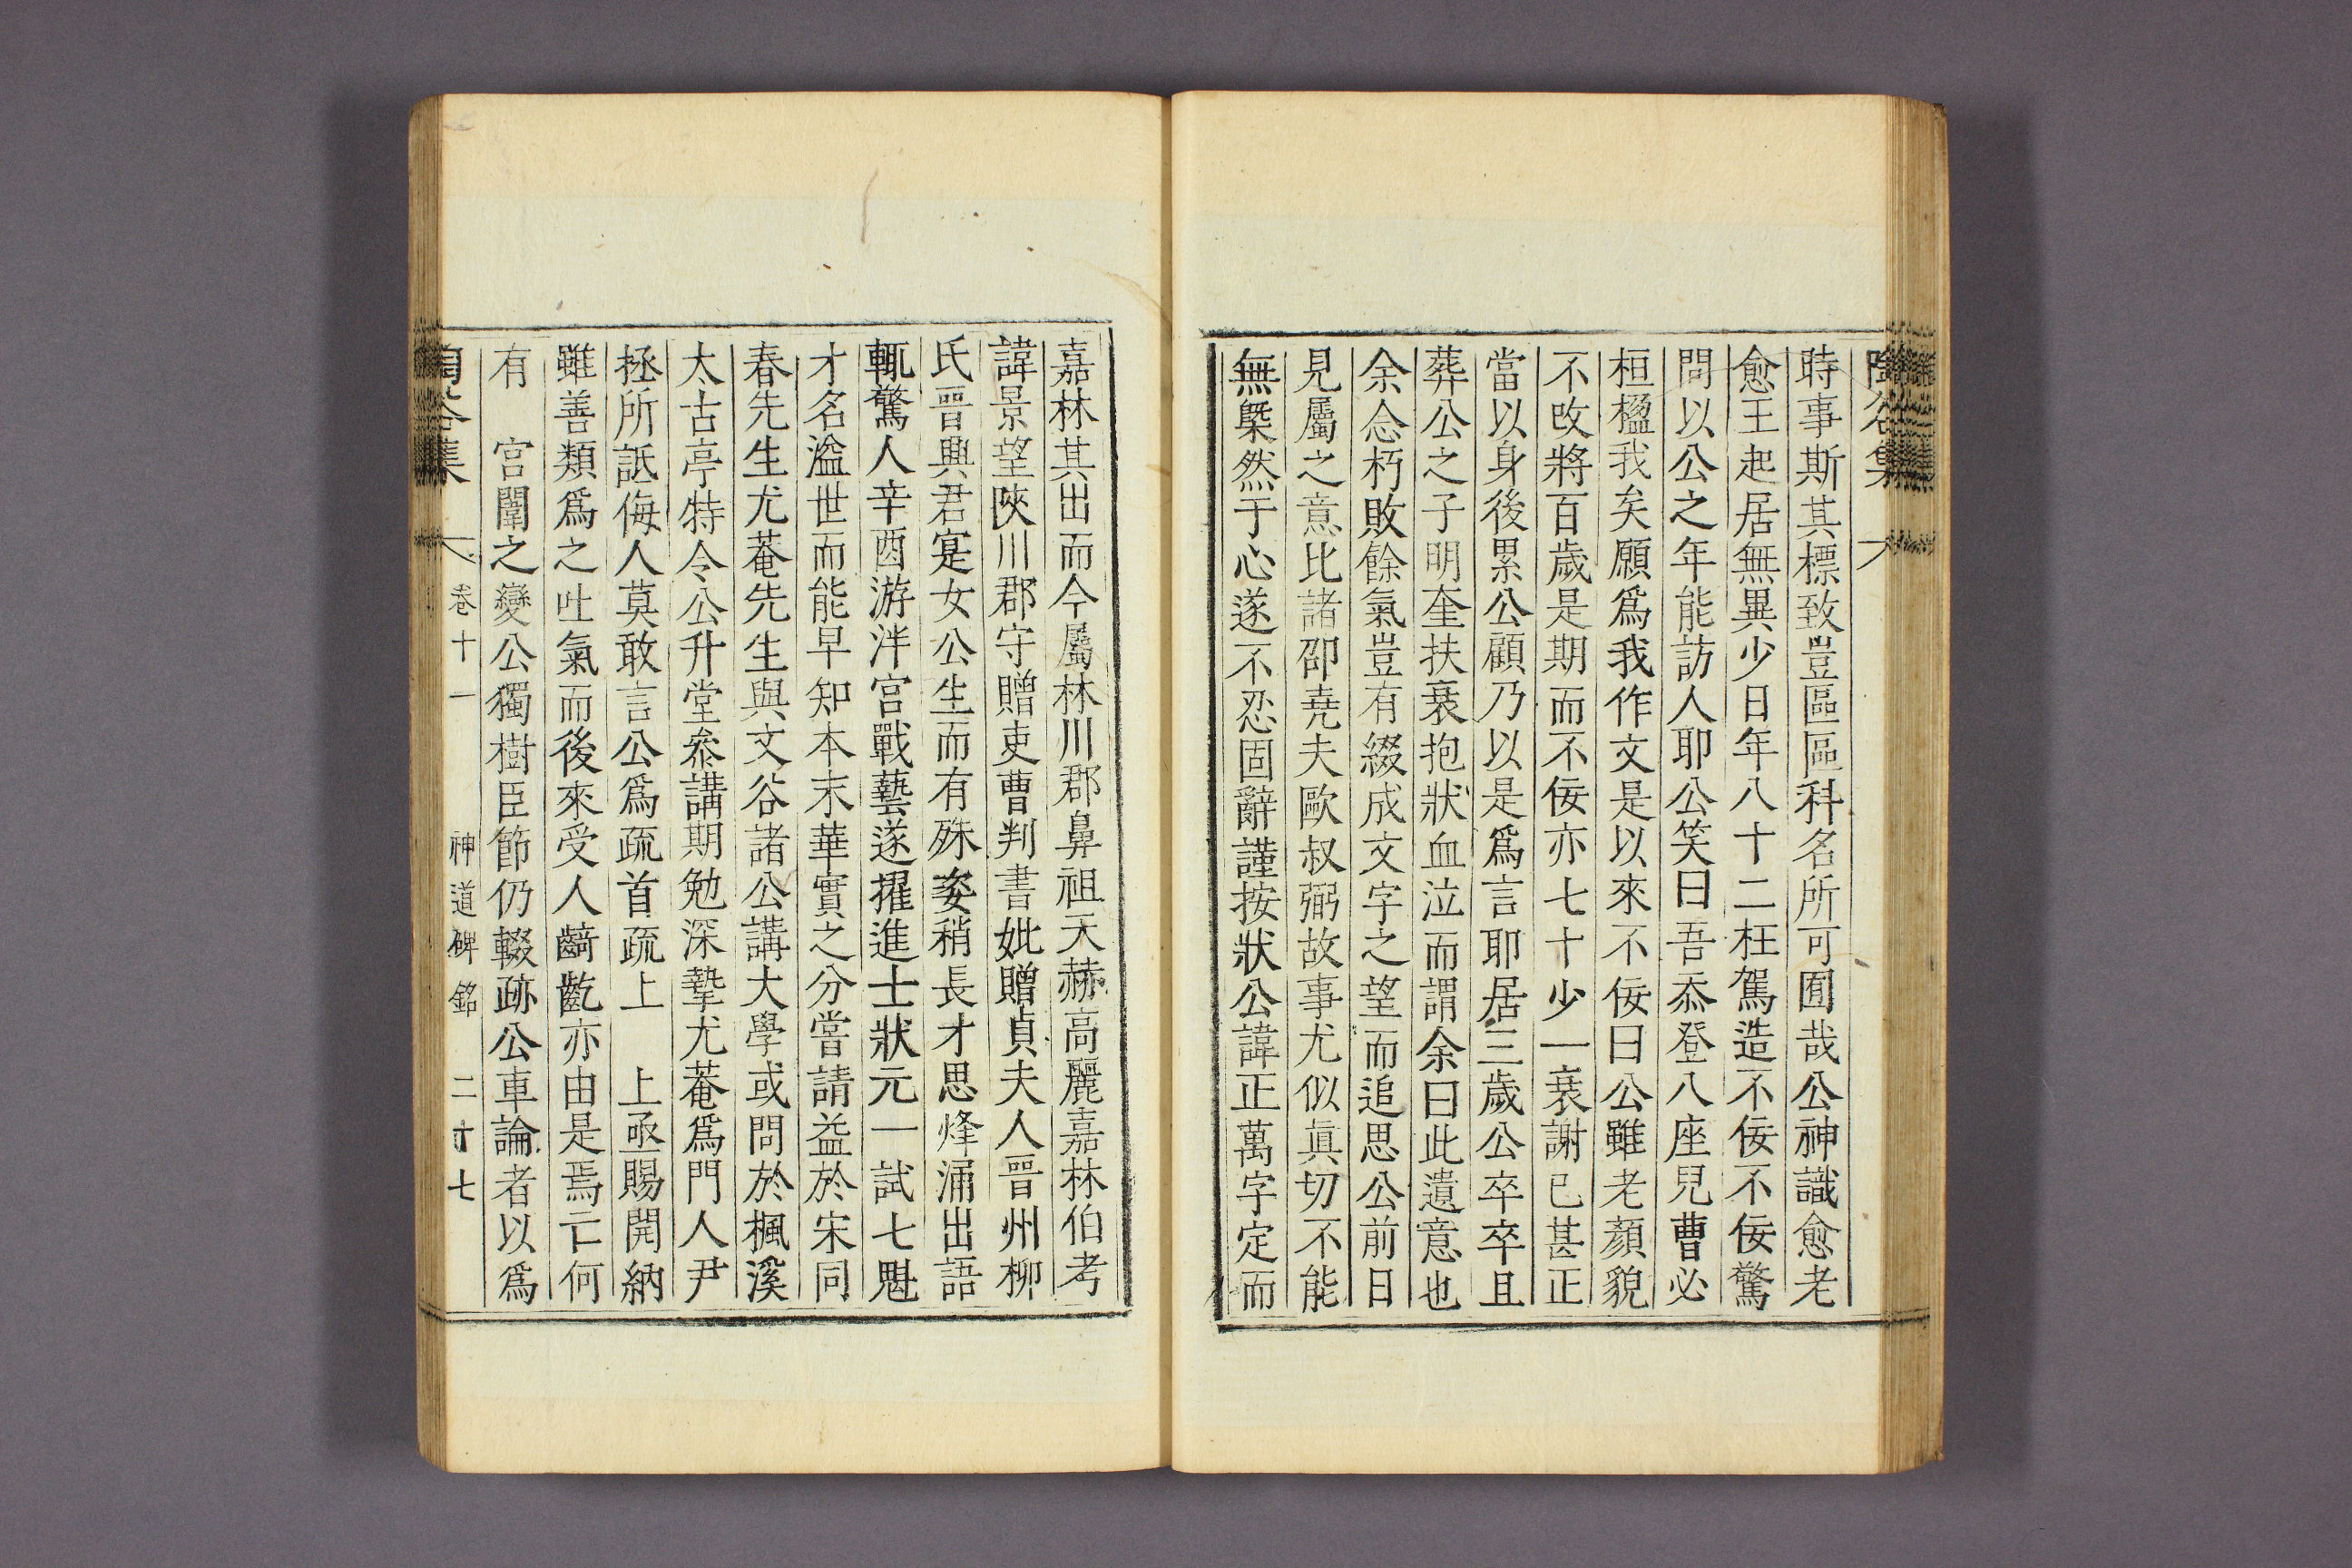 陶谷集
時事斯其標致豈區區科名所可囿哉公神識愈老
愈王起居無異少日年八十二枉駕造不佞不佞驚
問以公之年能訪人耶公笑曰吾忝登八座兒曹必
桓楹我矣願爲我作文是以來不佞曰公雖老顏貌
不改將百歲是期而不佞亦七十少一衰謝已甚正
當以身後累公顧乃以是爲言耶居三歲公卒卒且
葬公之子明奎扶衰抱狀血泣而謂余曰此遺意也
余念朽敗餘氣豈有綴成文字之望而追思公前日
見屬之意比諸邵堯夫歐叔弼故事尤似眞切不能
無槩然于心遂不忍固辭謹按狀公諱正萬字定而
嘉林其出而今屬林川郡鼻祖天赫高麗嘉林伯考
諱景望陜川郡守贈吏曹判書妣贈貞夫人晉州柳
氏晉興君寔女公生而有殊姿稍長才思烽涌出語
輒驚人辛酉游泮宮戰藝遂擢進士狀元一試七魁
才名溢世而能早知本末華實之分嘗請益於宋同
春先生尤菴先生與文谷諸公講大學或問於楓溪
太古亭特令公升堂叅講期勉深摯尤菴爲門人尹
拯所詆侮人莫敢言公爲疏首疏上　上亟賜開納
雖善類爲之吐氣而後來受人齮齕亦由是焉亡何
有　宮闈之變公獨樹臣節仍輟跡公車論者以爲
陶谷集　卷十一　神道碑銘　二十七